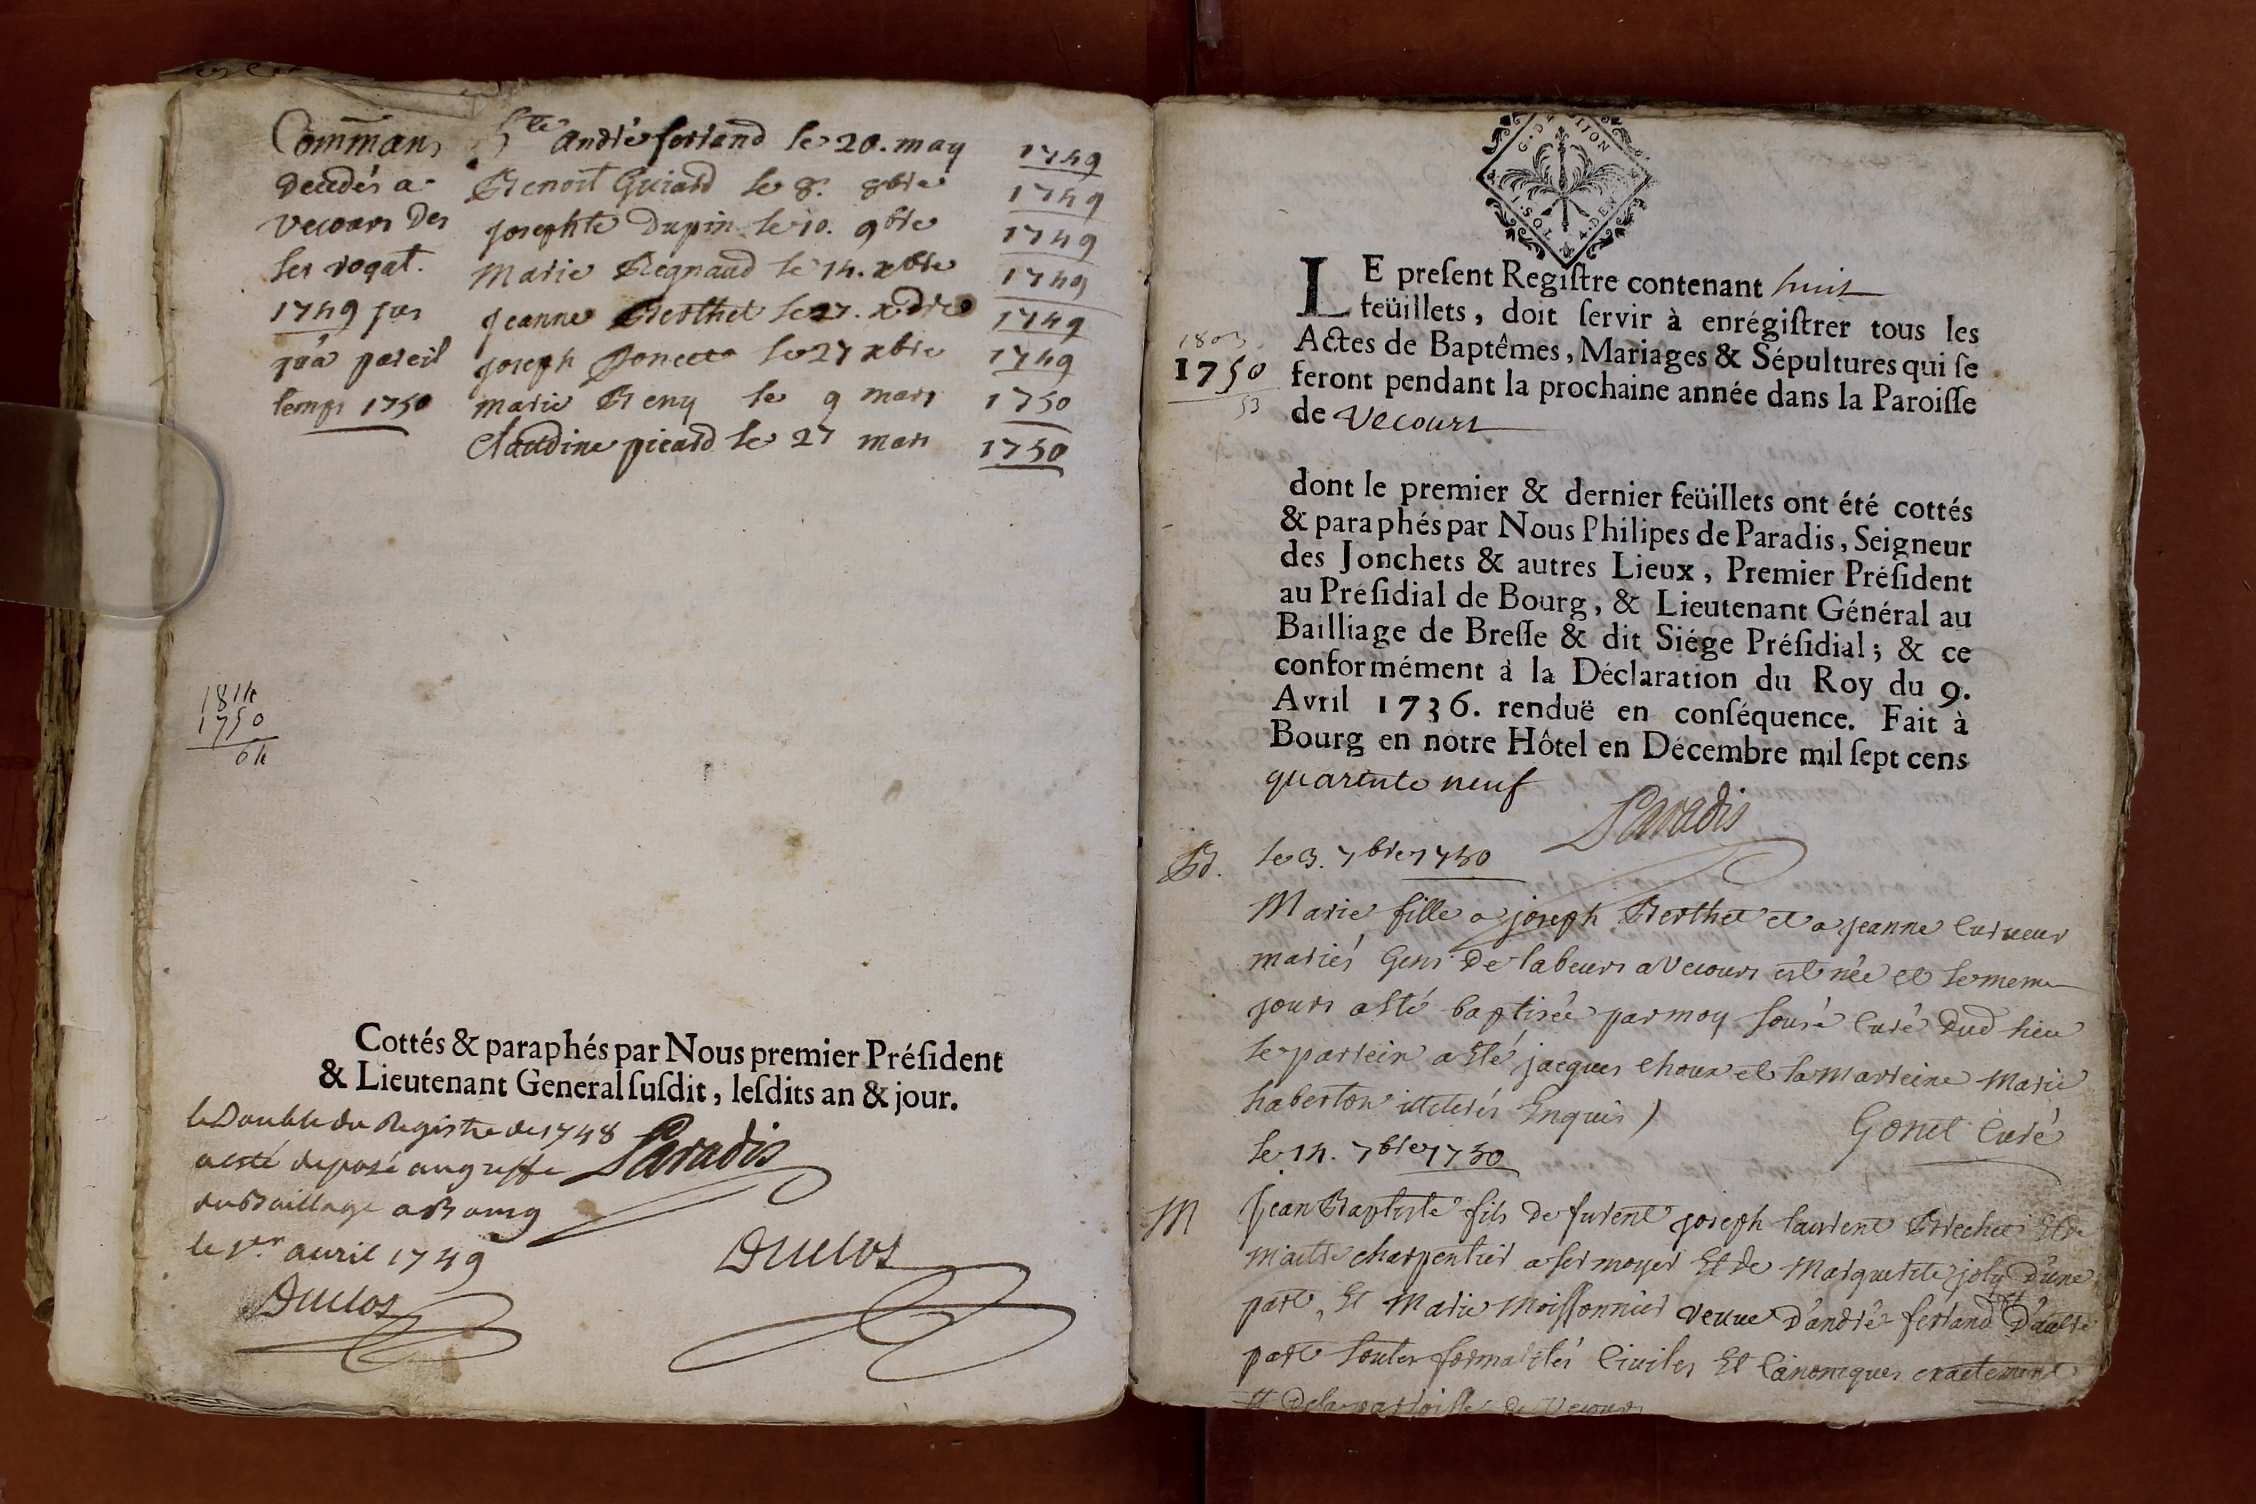 Comman̄s 5te André ferland le 20. may 1749
decedés a Benoit Guiard le 8. 8bre 1749
Vecours Des josephte Dupin le 10. 9bre 1749
les rogat. Marie Regnaud le 14. xbre 1749
1749 jus jeanne Berthet le 27. xbre 1749
qu'a pareil joseph le 27 xbre 1749
temps 1750 marie Reny le 9 mars 1750
Claudine picard le 27 mars 1750
1814
1750
64
Cottés & paraphés par Nous premier Préſident
& Lieutenant General ſuſdit, leſdits an & jour.
le Double du Registre de 1748
a esté deposé au greffe Paradis
du Baillage a Bourg
le 1er auril 1749
Duclos Duclos
G. DE DIJON
1. SOL 4. DEN
LE preſent Regiſtre contenant huit
feüillets, doit ſervir à enrégiſtrer tous les
Actes de Baptêmes, Mariages & Sépultures qui ſe
feront pendant la prochaine année dans la Paroiſſe
de Vecours
1803
1750
53
dont le premier & dernier feüillets ont été cottés
& paraphés par Nous Philipes de Paradis, Seigneur
des Jonchets & autres Lieux, Premier Préſident
au Préſidial de Bourg, & Lieutenant Général au
Bailliage de Breſſe & dit Siége Préſidial; & ce
conformément à la Déclaration du Roy du 9.
Avril 1736. renduë en conſéquence. Fait à
Bourg en nôtre Hôtel en Décembre mil ſept cens
quarente neuf
Paradis
B. le 3. 7bre 1750
Marie fille a joseph Berthet et a jeanne Curveur
mariés Gens De labeurs a Vecours est née et le meme
jours a été baptisée par moy sousé Curé Dud lieu
le parrein a été jacques choux et la marreine Marie
haberton illeterés Enquis) Gonet Curé
le 14. 7bre 1750
M Jean Baptiste fils de furent joseph laurent Brechet
maitre charpentier a sermoyer Et de Marguerite joly D'une
part, Et Marie Moissonnier veuve D'andré ferland D'autre
part toutes formalités Civiles Et Canoniques exactement
# De la parroisse de Vecours